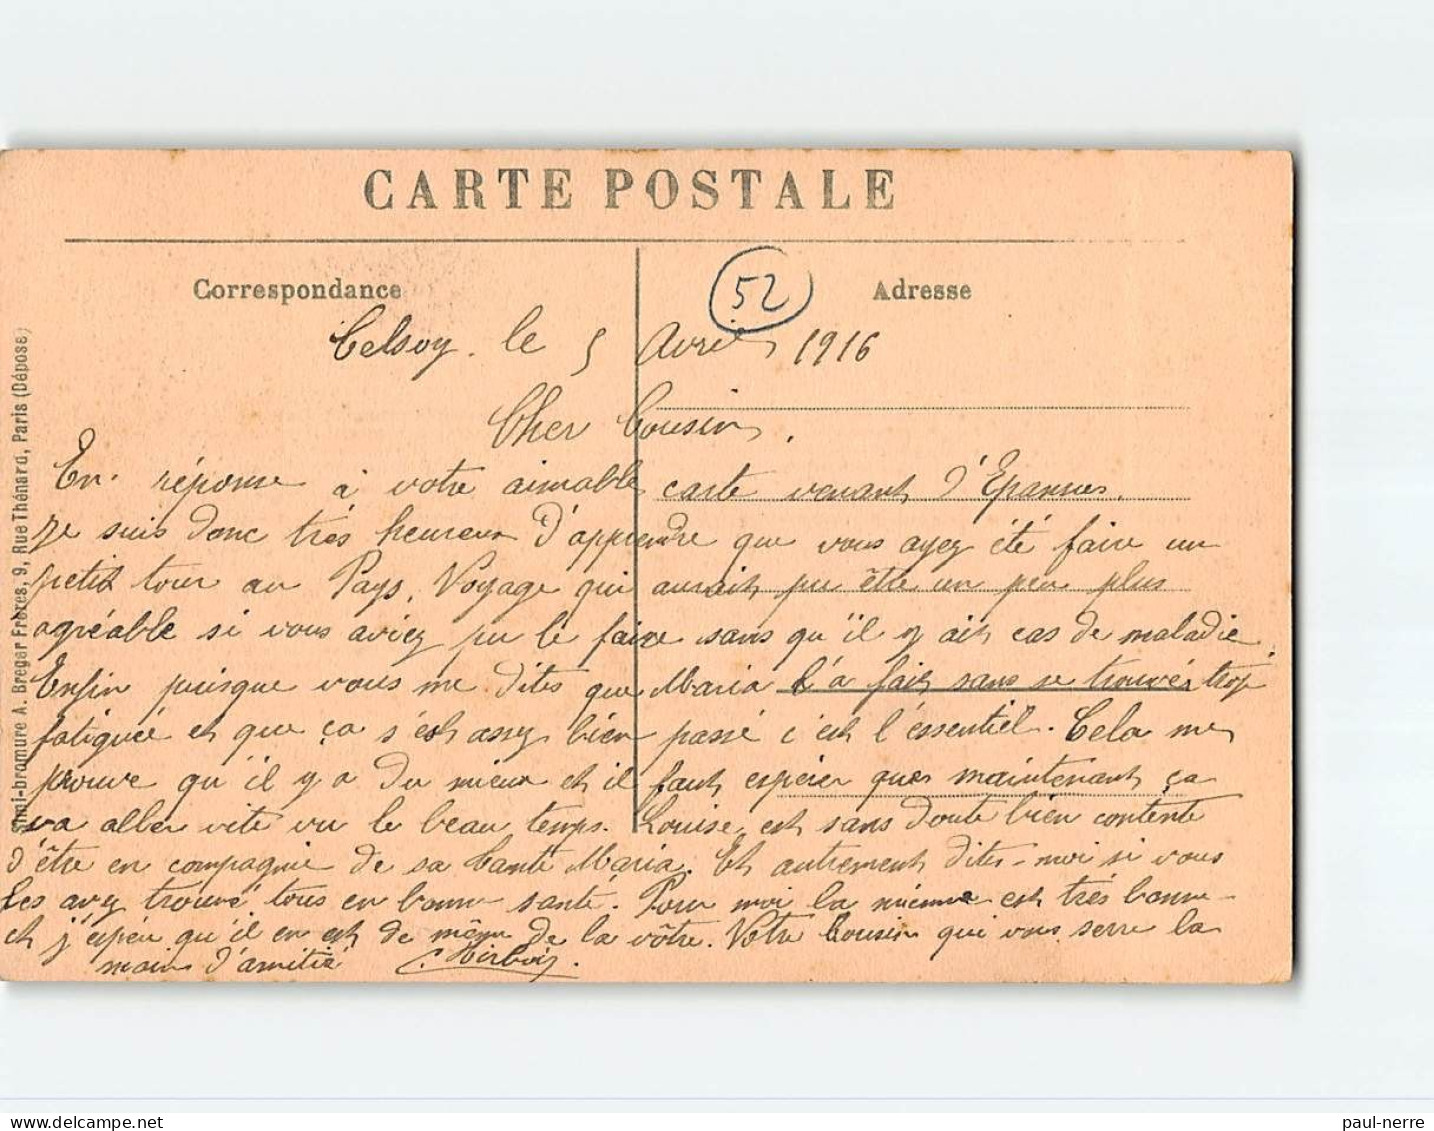 CARTE POSTALE
Correspondance
52
Adresse
Celsoy. le 5 Avril 1916
Cher Cousin,
En réponse à votre aimable carte venant d'Epannes.
je suis donc très heureux d'apprendre que vous ayez été faire un
petit tour au Pays. Voyage qui aurait pu être un peu plus
agréable si vous aviez pu le faire sans qu'il y ait cas de maladie.
Enfin puisque vous me dites que Maria l'a fait sans se trouvés trop
fatiguée et que ça s'est assez bien passé c'est l'éssentiel. Cela me
prouve qu'il y a du mieux et il faut espérer que maintenant ça
va aller vite vu le beau temps. Louise est sans doute bien contente
d'être en compagnie de sa tante Maria. Et autrement dites-moi si vous
les avez trouvé tous en bonne santé. Pour moi la mienne est très bonne
et j'éspère qu'il en est de même de la vôtre. Votre Cousin qui vous serre la
main d'amitié
Simi-bromure A. Breger Frères, 9, Rue Thénard, Paris (Déposé)
paul-nerre